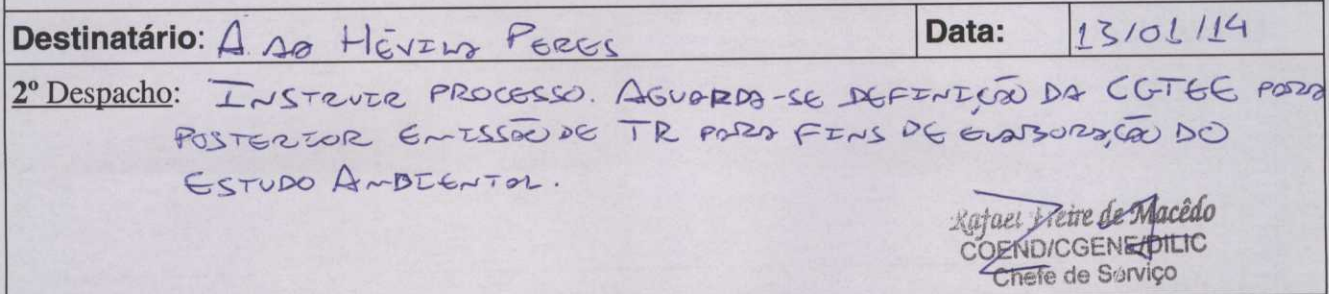 Destinatário: À AA HÉVILA PERES Data: 13/01/14
2º Despacho: INSTRUIR PROCESSO. AGUARDA-SE DEFINIÇÃO DA CGTEE PARA
POSTERIOR EMISSÃO DE TR PARA FINS DE ELABORAÇÃO DO
ESTUDO AMBIENTAL.
Rafael Freire de Macêdo
COEND/CGENE/DILIC
Chefe de Serviço